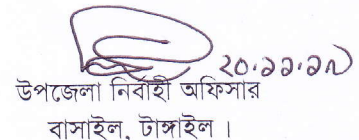 ২০.১১.১৭
উপজেলা নির্বাহী অফিসার
বাসাইল, টাঙ্গাইল ।